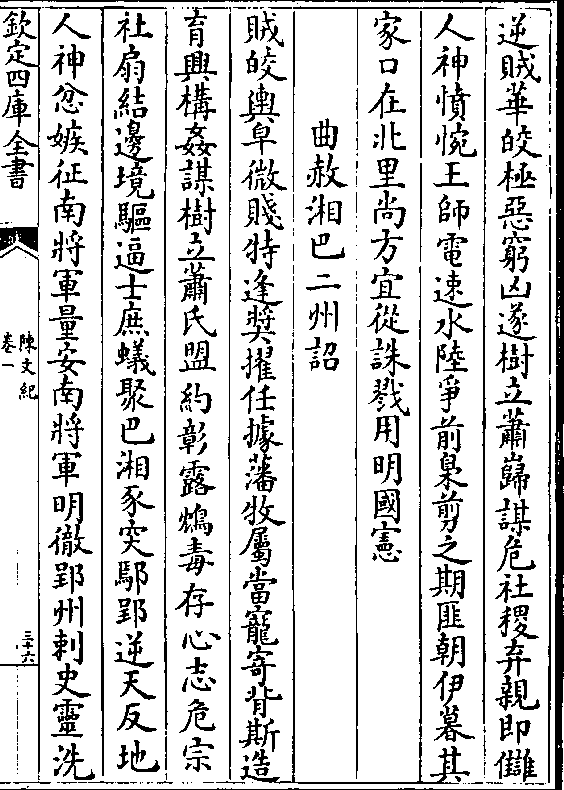 逆賊華皎極惡窮凶遂樹立蕭巋謀危社稷弃親即讎
人神憤惋王師電速水陸爭前梟剪之期匪朝伊暮其
家口在北里尚方宜從誅戮用明國憲
曲赦湘巴二州詔
賊皎輿皁微賤特逢奬擢任據藩牧屬當寵寄背斯造
育興構姦謀樹立蕭氏盟約彰露鴆毒存心志危宗
社扇結邊境驅逼士庶蟻聚巴湘豕突鄢郢逆天反地
人神忿嫉征南將軍量安南將軍明徹郢州刺史靈洗
欽定四庫全書
陳文紀
卷一
三十六